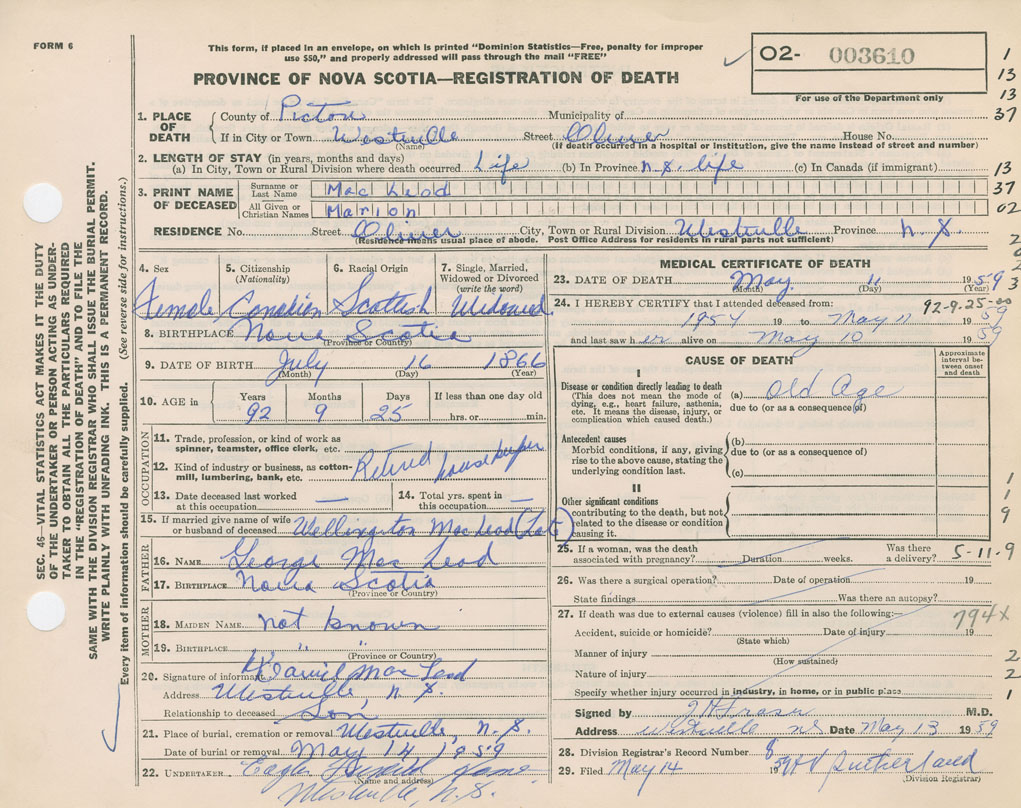 FORM 6
This form, if placed in an envelope, on which is printed "Dominion Statistics—Free, penalty for improper
use $50," and properly addressed will pass through the mail "FREE"
PROVINCE OF NOVA SCOTIA—REGISTRATION OF DEATH
02- 003610
For use of the Department only
1
13
13
37
13
37
02
SEC. 46—VITAL STATISTICS ACT MAKES IT THE DUTY
OF THE UNDERTAKER OR PERSON ACTING AS UNDER-
TAKER TO OBTAIN ALL THE PARTICULARS REQUIRED
IN THE "REGISTRATION OF DEATH" AND TO FILE THE
SAME WITH THE DIVISION REGISTRAR WHO SHALL ISSUE THE BURIAL PERMIT.
WRITE PLAINLY WITH UNFADING INK. THIS IS A PERMANENT RECORD.
Every item of information should be carefully supplied. (See reverse side for instructions.)
1. PLACE OF DEATH
County of Pictou Municipality of
If in City or Town Westville Street Oliver House No.
(Name) (If death occurred in a hospital or institution, give the name instead of street and number)
2. LENGTH OF STAY (in years, months and days)
(a) In City, Town or Rural Division where death occurred Life (b) In Province N.S. life (c) In Canada (if immigrant)
3. PRINT NAME OF DECEASED
Surname or Last Name Mac Leod
All Given or Christian Names Marion
RESIDENCE No. Street Oliver City, Town or Rural Division Westville Province N.S.
(Residence means usual place of abode. Post Office Address for residents in rural parts not sufficient)
4. Sex Female
5. Citizenship (Nationality) Canadian
6. Racial Origin Scottish
7. Single, Married, Widowed or Divorced (write the word) Widowed
8. BIRTHPLACE Nova Scotia
(Province or Country)
9. DATE OF BIRTH July 16 1866
(Month) (Day) (Year)
10. AGE in Years 92 Months 9 Days 25 If less than one day old hrs. or min.
OCCUPATION
11. Trade, profession, or kind of work as spinner, teamster, office clerk, etc. Retired housekeeper
12. Kind of industry or business, as cotton-mill, lumbering, bank, etc.
13. Date deceased last worked at this occupation —
14. Total yrs. spent in this occupation —
15. If married give name of wife or husband of deceased Wellington MacLeod (Late)
FATHER
16. NAME George Mac Leod
17. BIRTHPLACE Nova Scotia
(Province or Country)
MOTHER
18. MAIDEN NAME not known
19. BIRTHPLACE " "
(Province or Country)
20. Signature of informant David MacLeod
Address Westville, N.S.
Relationship to deceased Son
21. Place of burial, cremation or removal Westville, N.S.
Date of burial or removal May 14 1959
22. UNDERTAKER Eagles Funeral Home
(Name and address)
Westville, N.S.
MEDICAL CERTIFICATE OF DEATH
23. DATE OF DEATH May 11 1959
(Month) (Day)
92-9-25-00
24. I HEREBY CERTIFY that I attended deceased from:
1954 19 to May 11 1959
and last saw her alive on May 10 1959
CAUSE OF DEATH
Approximate interval between onset and death
I
Disease or condition directly leading to death
(This does not mean the mode of dying, e.g., heart failure, asthenia, etc. It means the disease, injury, or complication which caused death.)
(a) Old Age
due to (or as a consequence of)
Antecedent causes
Morbid conditions, if any, giving rise to the above cause, stating the underlying condition last.
(b)
due to (or as a consequence of)
(c)
II
Other significant conditions contributing to the death, but not related to the disease or condition causing it.
1
1
9
25. If a woman, was the death associated with pregnancy? Duration weeks. Was there a delivery? 5-11-9
26. Was there a surgical operation? Date of operation 19
State findings Was there an autopsy?
27. If death was due to external causes (violence) fill in also the following:— 794x
Accident, suicide or homicide? Date of injury 19
(State which)
Manner of injury 2
(How sustained)
Nature of injury 2
Specify whether injury occurred in industry, in home, or in public place 1
Signed by J H Fraser M.D.
Address Westville NS Date May 13 1959
28. Division Registrar's Record Number 8
29. Filed May 14 1959 Sutherland
(Division Registrar)